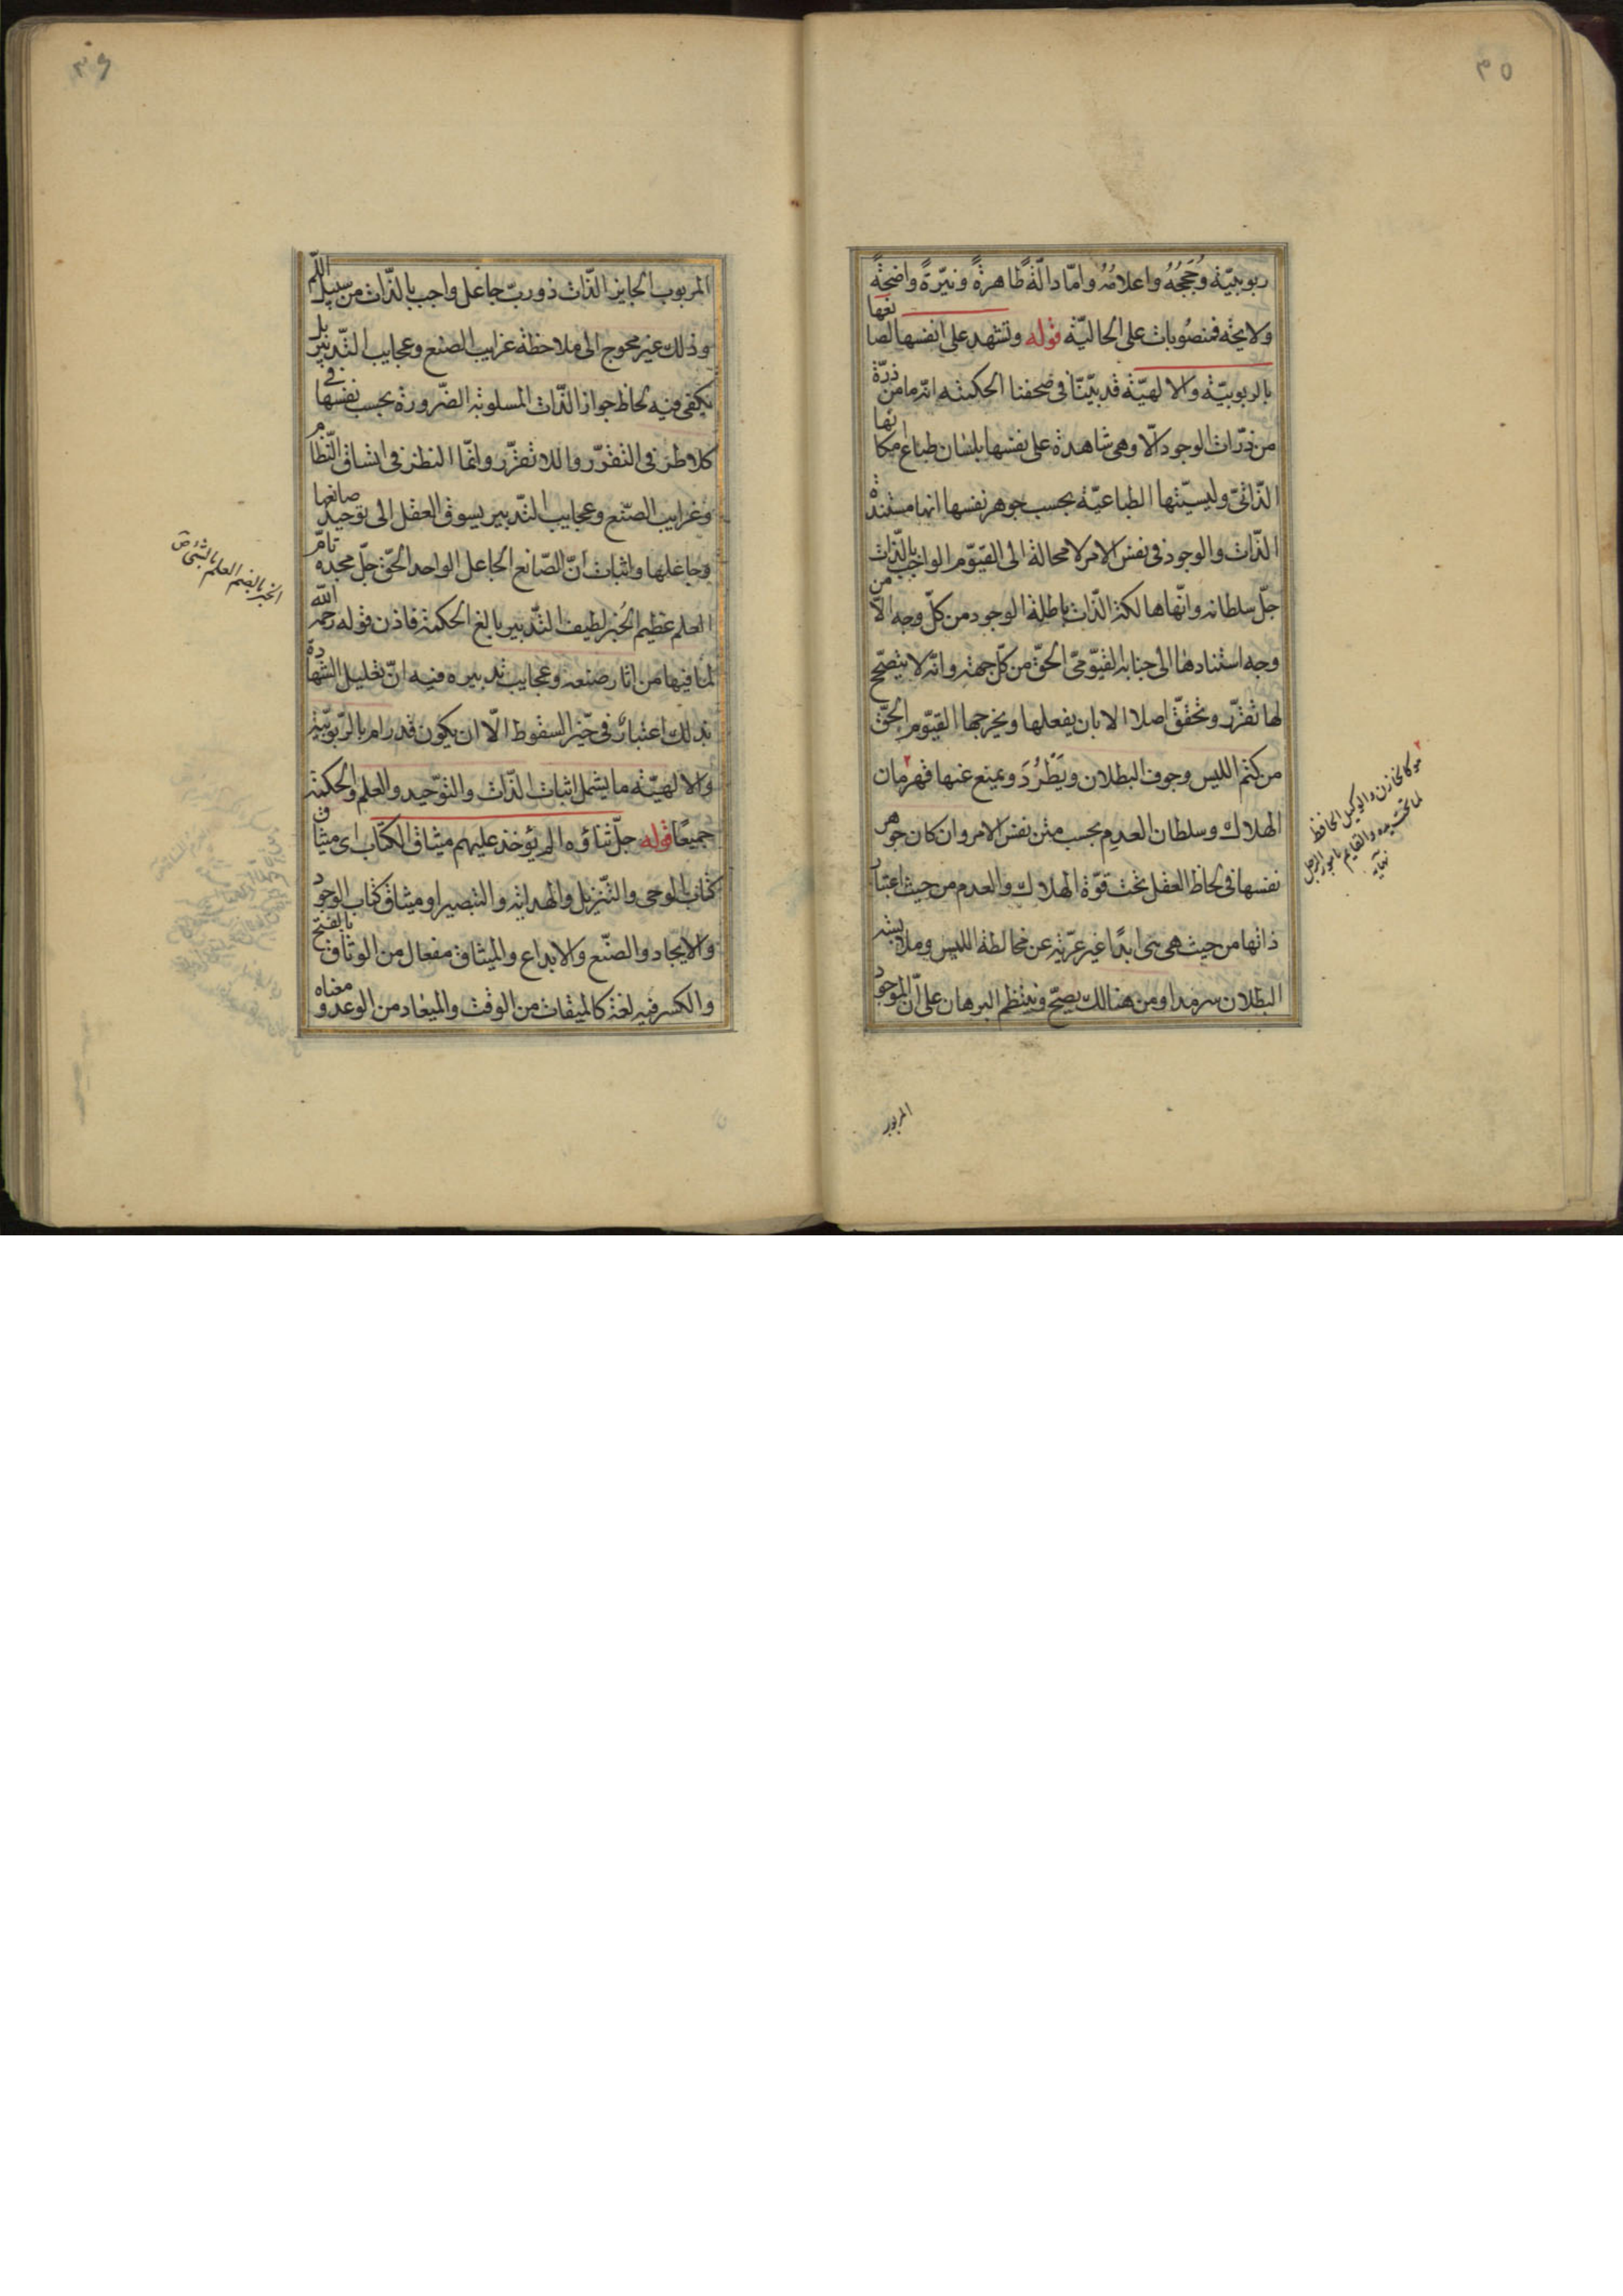 ٣٥
ربوبيّة وحُججُهُ واعلامُهُ وامّا دالّةً ظاهرةً ونيّرةً واضحةً
ولايحة فمنصُوبات على الحاليّة قوله وتشهد على انفسها لصانعها
بالربوبيّة والالهيّة قد بيّنّا فى صحفنا الحكميّه انّه ما من ذرّة
من ذرّات الوجود الّا وهى شاهدة على نفسها بلسان طباع امكانها
الذّاتىّ وليسيّتها الطباعيّة بحسب جوهر نفسها انها مستندة
الذّات والوجود فى نفس الامر لا محالة الى القيّوم الواجب بالذّات
جلّ سلطانه وانّها هالكة الذّات باطلة الوجود من كلّ وجه الّا من
وجه استنادها الى جنابه القيّومىّ الحقّ من كلّ جهة وانّه لا يتصحّح
لها تقرّر وتحقّق اصلا الا بان يفعلها ويخرجها القيّوم الحقّ
من كتم الليس وجوف البطلان ويَطْرُدَ ويمنع عنها قهرمان
الهلاك وسلطان العدم بحسب متن نفس الامر وان كان جوهر
نفسها فى لحاظ العقل تحت قوّة الهلاك والعدم من حيث اعتبار
ذاتها من حيث هى هى ابدًا غير عرّية عن مخالطة الليس وملابسة
البطلان سرمدا ومن هنالك يصحّ وينتظم البرهان على انّ الموجود
هو كالخازن والوكيل الحافظ
لما تحت يده والقايم بامور الرجل
نهاية
المربوب
٣٦
المربوب الجايز الذّات ذو ربّ جاعل واجب بالذّات من سبيل اللّم
وذلك غير محوج الى ملاحظة غرايب الصنع وعجايب التّدبير بل
يكفى فيه لحاظ جواز الذّات المسلوبة الضّرورة بحسب نفسها فى
كلا طرفى التقرّر واللاتقرّر وانّما النظر فى اتساق النّظام
وغرايب الصّنع وعجايب التّدبير يسوق العقل الى توحيد صانعها
وجاعلها واثبات انّ الصّانع الجاعل الواحد الحّق جلّ مجده تامّ
العلم عظيم الخُبر لطيف التّدبير بالغ الحكمة فاذن قوله رحمه الله
لما فيها من اثار صنعه وعجايب تدبيره فيه انّ تعليل الشهادة
بذلك اعتبارٌ فى حيّز السقوط الّا ان يكون قد رام بالرّبوبيّة
والالهيّة ما يشمل اثبات الذّات والتوّحيد والعلم والحكمة
جميعًا قوله جلّ ثناؤه الم يؤخذ عليهم ميثاق الكتاب اى ميثاق
كتاب الوحى والتّنزيل والهداية والتبصير او ميثاق كتاب الوجود
والايجاد والصّنع والابداع والميثاق مفعال من الوثاق بالفتح
والكسر فيه لغة كالميقات من الوقت والميعاد من الوعد ومعناه
الخبر بالضم العلم بالشئ ص